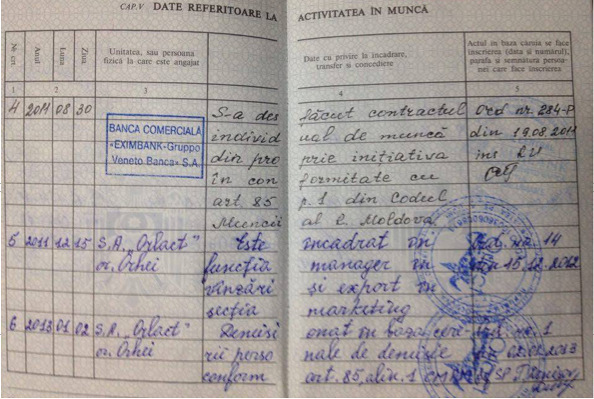 CAP.V DATE REFERITOARE LA ACTIVITATEA ÎN MUNCĂ
Nr. crt.
Anul
Luna
Ziua
Unitatea, sau persoana fizică la care este angajat
Date cu privire la încadrare, transfer şi concediere
Actul în baza căruia se face înscrierea (data şi numărul), parafa şi semnătura persoanei care face înscrierea
1 2 3 4 5
4 2011 08 30
BANCA COMERCIALĂ
«EXIMBANK-Gruppo
Veneto Banca» S.A.
S-a desfăcut contractul Ord nr. 284-P
individual de muncă din 19.08.2011
din proprie initiativa ins RU
în conformitate cu
art. 85 p. 1 din Codul
Muncii al R. Moldova
5 2011 12 15 S.A. „Orlact” Este încadrat în 14
or. Orhei funcţia manager în 15.12
vînzări şi export în
secţia marketing
6 2013 01 02 S.A. „Orlact” onat în baza 1
or. Orhei nale de demisie
conform art. 85, alin. 1